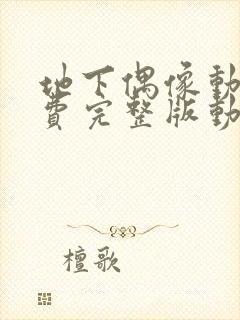 地下偶像動
費完整版動
檀歌